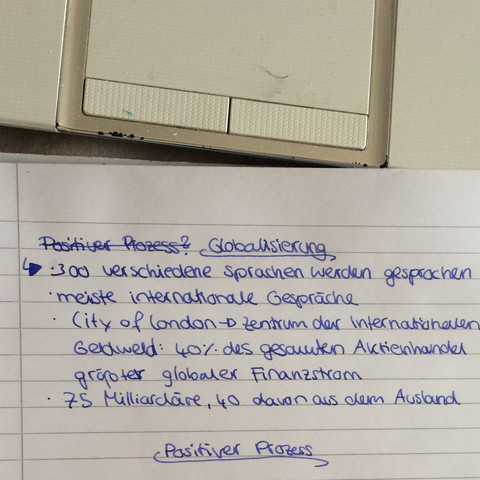 Positiver Prozess? Globalisierung
↳ · 300 verschiedene Sprachen werden gesprochen
· meiste internationale Gespräche
· City of London → Zentrum der Internationalen
Geldweld: 40% des gesamten Aktienhandel
größter globaler Finanzstrom
· 75 Milliardäre, 40 davon aus dem Ausland
Positiver Prozess